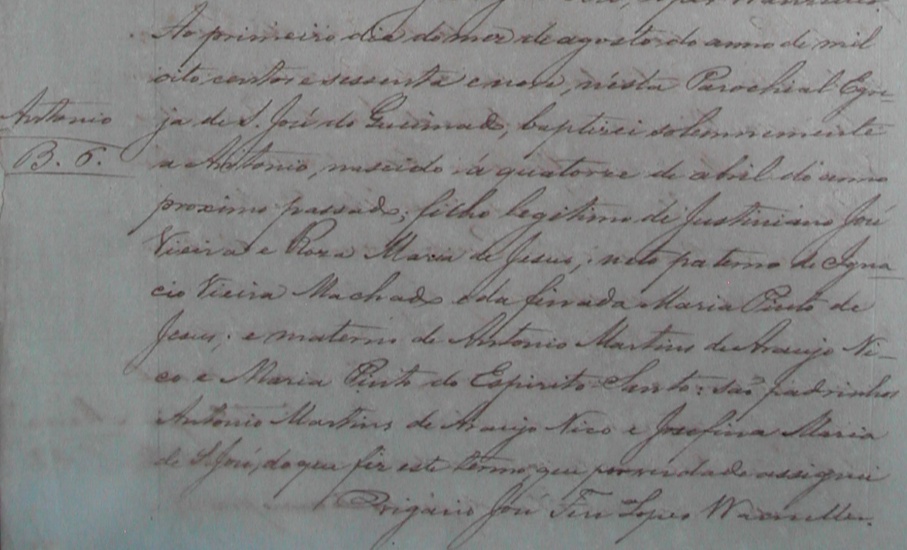 Ao primeiro dia do mez de agosto do anno de mil
oito centos e sessenta e nove, nésta Parochial Egre-
ja de S. José do Queimado, baptizei solemnemente
Antonio
B. 6.
a Antonio, nascido á quatorze de abril do anno
proximo passado; filho legitimo de Justiniano José
Vieira e Roza Maria de Jesus; neto paterno de Igna
cio Vieira Machado e da finada Maria Pinto de
Jesus; e materno de Antonio Martins de Araujo Ni-
co e Maria Pinto do Espirito Santo: são padrinhos
Antonio Martins de Araujo Nico e Josefina Maria
de S. José, do que fiz este termo que por verdade assignei
O vigário José Lopes